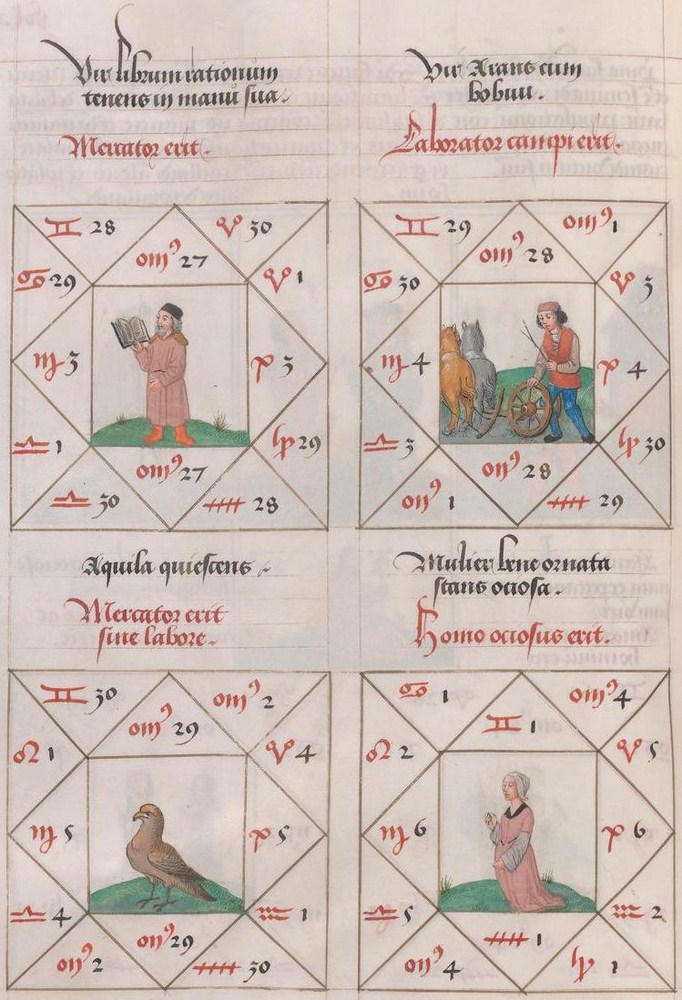 Vir librum rationum
tenens in manu sua.
Mercator erit.
♊ 28
27
♈ 30
♋ 29
♈ 1
♍ 3
♓ 3
♎ 1
♑ 29
27
♎ 30
♐ 28
Vir Arans cum
bobuu.
Laborator campi erit.
♊ 29
28
1
♋ 30
♈ 3
♍ 4
♓ 4
♎ 3
♑ 30
28
1
♐ 29
Aquila quiescens.
Mercator erit
sine labore.
♊ 30
29
2
♌ 1
♈ 4
♍ 5
♓ 5
♎ 4
♒ 1
29
2
♐ 30
Mulier bene ornata
stans ociosa.
Homo ociosus erit.
♋ 1
♊ 1
4
♌ 2
♈ 5
♍ 6
♓ 6
♎ 5
♒ 2
♐ 1
4
♑ 1